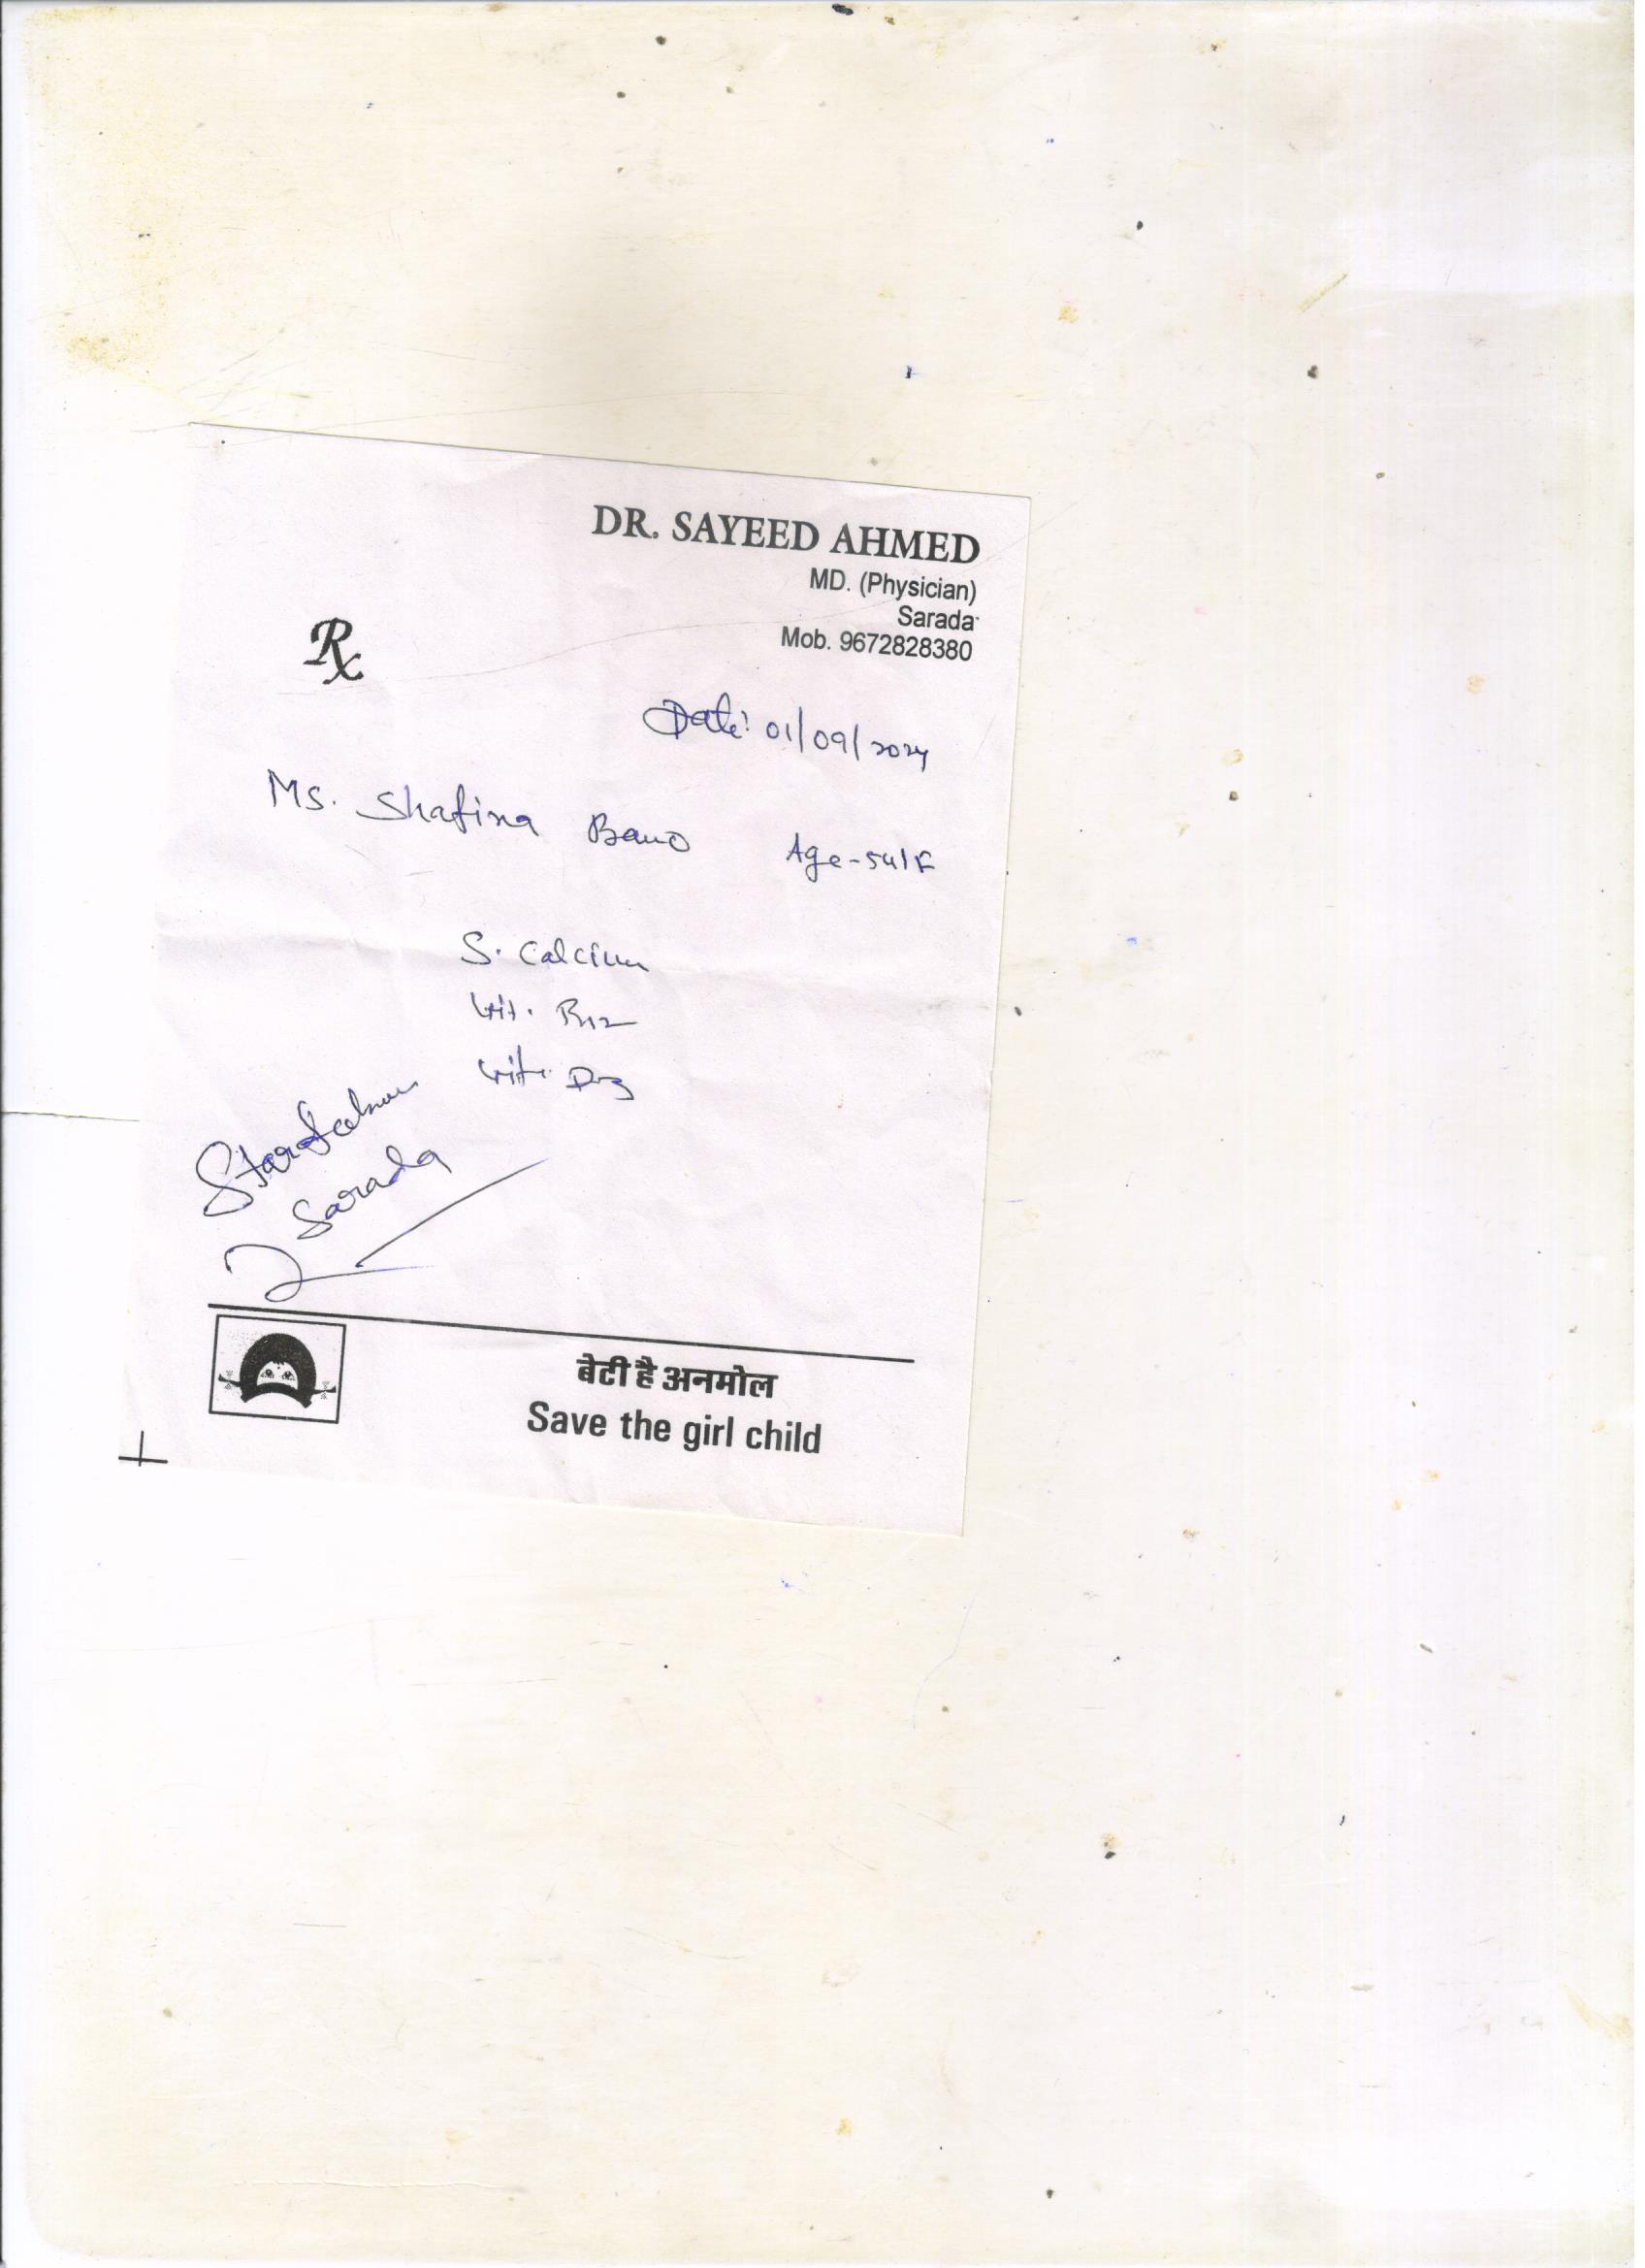 DR. SAYEED AHMED
MD. (Physician)
Sarada
Mob. 9672828380
Rx
Date: 01/09/2024
Ms. Shafina Bano Age-54/F
S. Calcium
Vit. B12
Vit. D3
Sarada
बेटी है अनमोल
Save the girl child